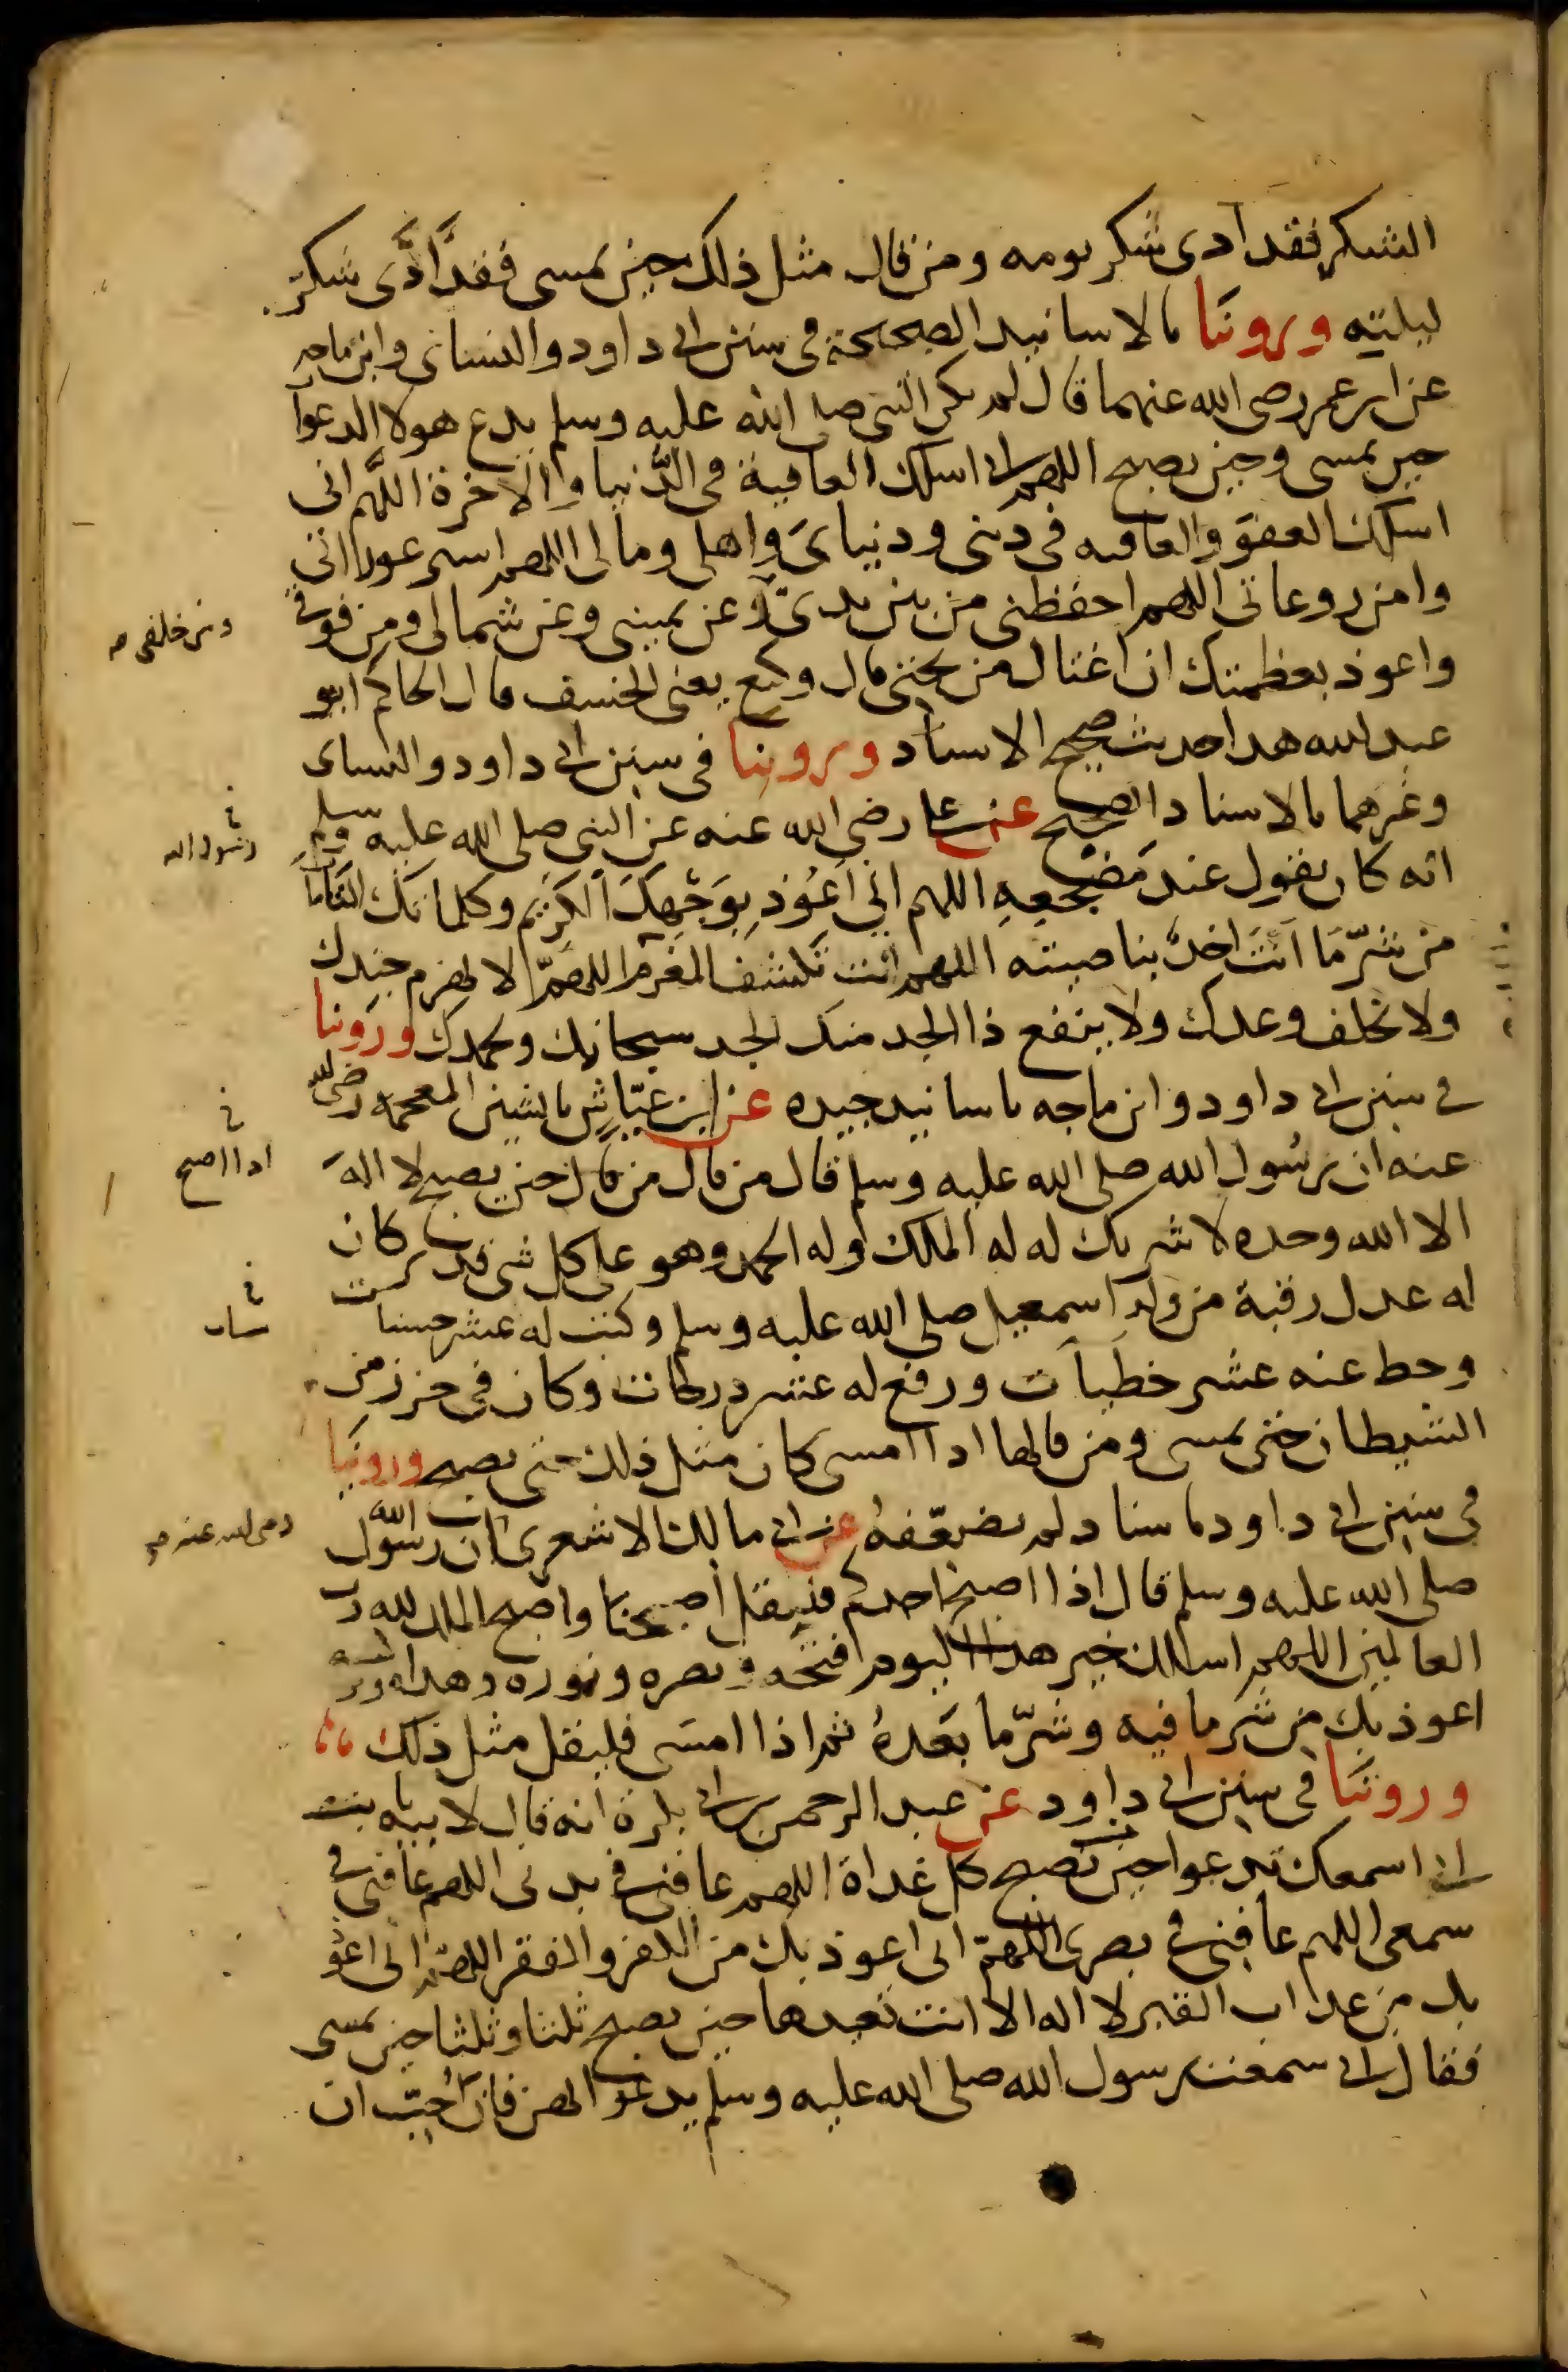 الشكر فقد ادى شكر يومه ومن قال مثل ذلك حين يمسى فقد ادَّى شكر
ليلته وروينا بالاسانيد الصحيحة فى سنن ابى داود والنساى وابن ماجه
عن ابن عمر رضى الله عنهما قال لم يكن النبى صلى الله عليه وسلم يدع هولا الدعوا
حين يمسى وحين يصبح اللهم انى اسلك العافية فى الدنيا والاخرة اللهم انى
اسلك العفو والعافيه فى دينى ودنياى واهلى ومالى اللهم استر عوراتى
وامن روعاتى اللهم احفظنى من بين يدىّ وعن يمينى وعن شمالى ومن فوقى
ومن خلفى صح
واعوذ بعظمتك ان اغتال من تحتى قال وكيع يعنى الخسف قال الحاكم ابو
عبد الله هذا حديث صحيح الاسناد وروينا فى سنن ابى داود والنساى
وغيرهما بالاسناد الصحيح عن على رضى الله عنه عن النبى صلى الله عليه وسلم
رسول الله
انه كان يقول عند مضجعه اللهم انى اعوذ بوجهك الكريم وكلماتك التامات
من شرّ ما انت اخذ بناصيته اللهم انت تكشف المغرم اللهم لا يهزم جندك
ولا تخلف وعدك ولا ينفع ذا الجد منك الجد سبحانك وبحمدك وروينا
فى سنن ابى داود وابن ماجه باسانيد جيده عن ابن عيّاش بالشين المعجمه رضى الله
عنه ان رسول الله صلى الله عليه وسلم قال من قال من قال حين يصبح لا اله
اذا اصبح
الا الله وحده لا شريك له له الملك وله الحمد وهو على كل شى قدير كان
له عدل رقبة من ولد اسمعيل صلى الله عليه وسلم وكتبت له عشر حسنات
وحط عنه عشر خطيآت ورفع له عشر درجات وكان فى حرز من
الشيطان حتى يمسى ومن قالها اذا امسى كان مثل ذلك حتى يصبح وروينا
فى سنن ابى داود باسناد لم يضعّفه عن ابى مالك الاشعرى ان رسول الله
رضى الله عنه صح
صلى الله عليه وسلم قال اذا اصبح احدكم فليقل اصبحنا واصبح الملك لله رب
العالمين اللهم اسلك خير هذا اليوم فتحه ونصره ونوره وهداه
اعوذ بك من شر ما فيه وشرّ ما بعده ثم اذا امسى فليقل مثل ذلك
وروينا فى سنن ابى داود عن عبد الرحمن بن ابى بكرة انه قال لابيه يا بت
انى اسمعك تدعوا حين تصبح كل غداة اللهم عافنى فى بدنى اللهم عافنى فى
سمعى اللهم عافنى فى بصرى اللهمّ انى اعوذ بك من الكفر والفقر اللهم انى اعوذ
بك من عذاب القبر لا اله الا انت تعيدها حين تصبح ثلثا وثلثا حين تمسى
فقال انى سمعت رسول الله صلى الله عليه وسلم يدعوا بهن فانا احبّ ان